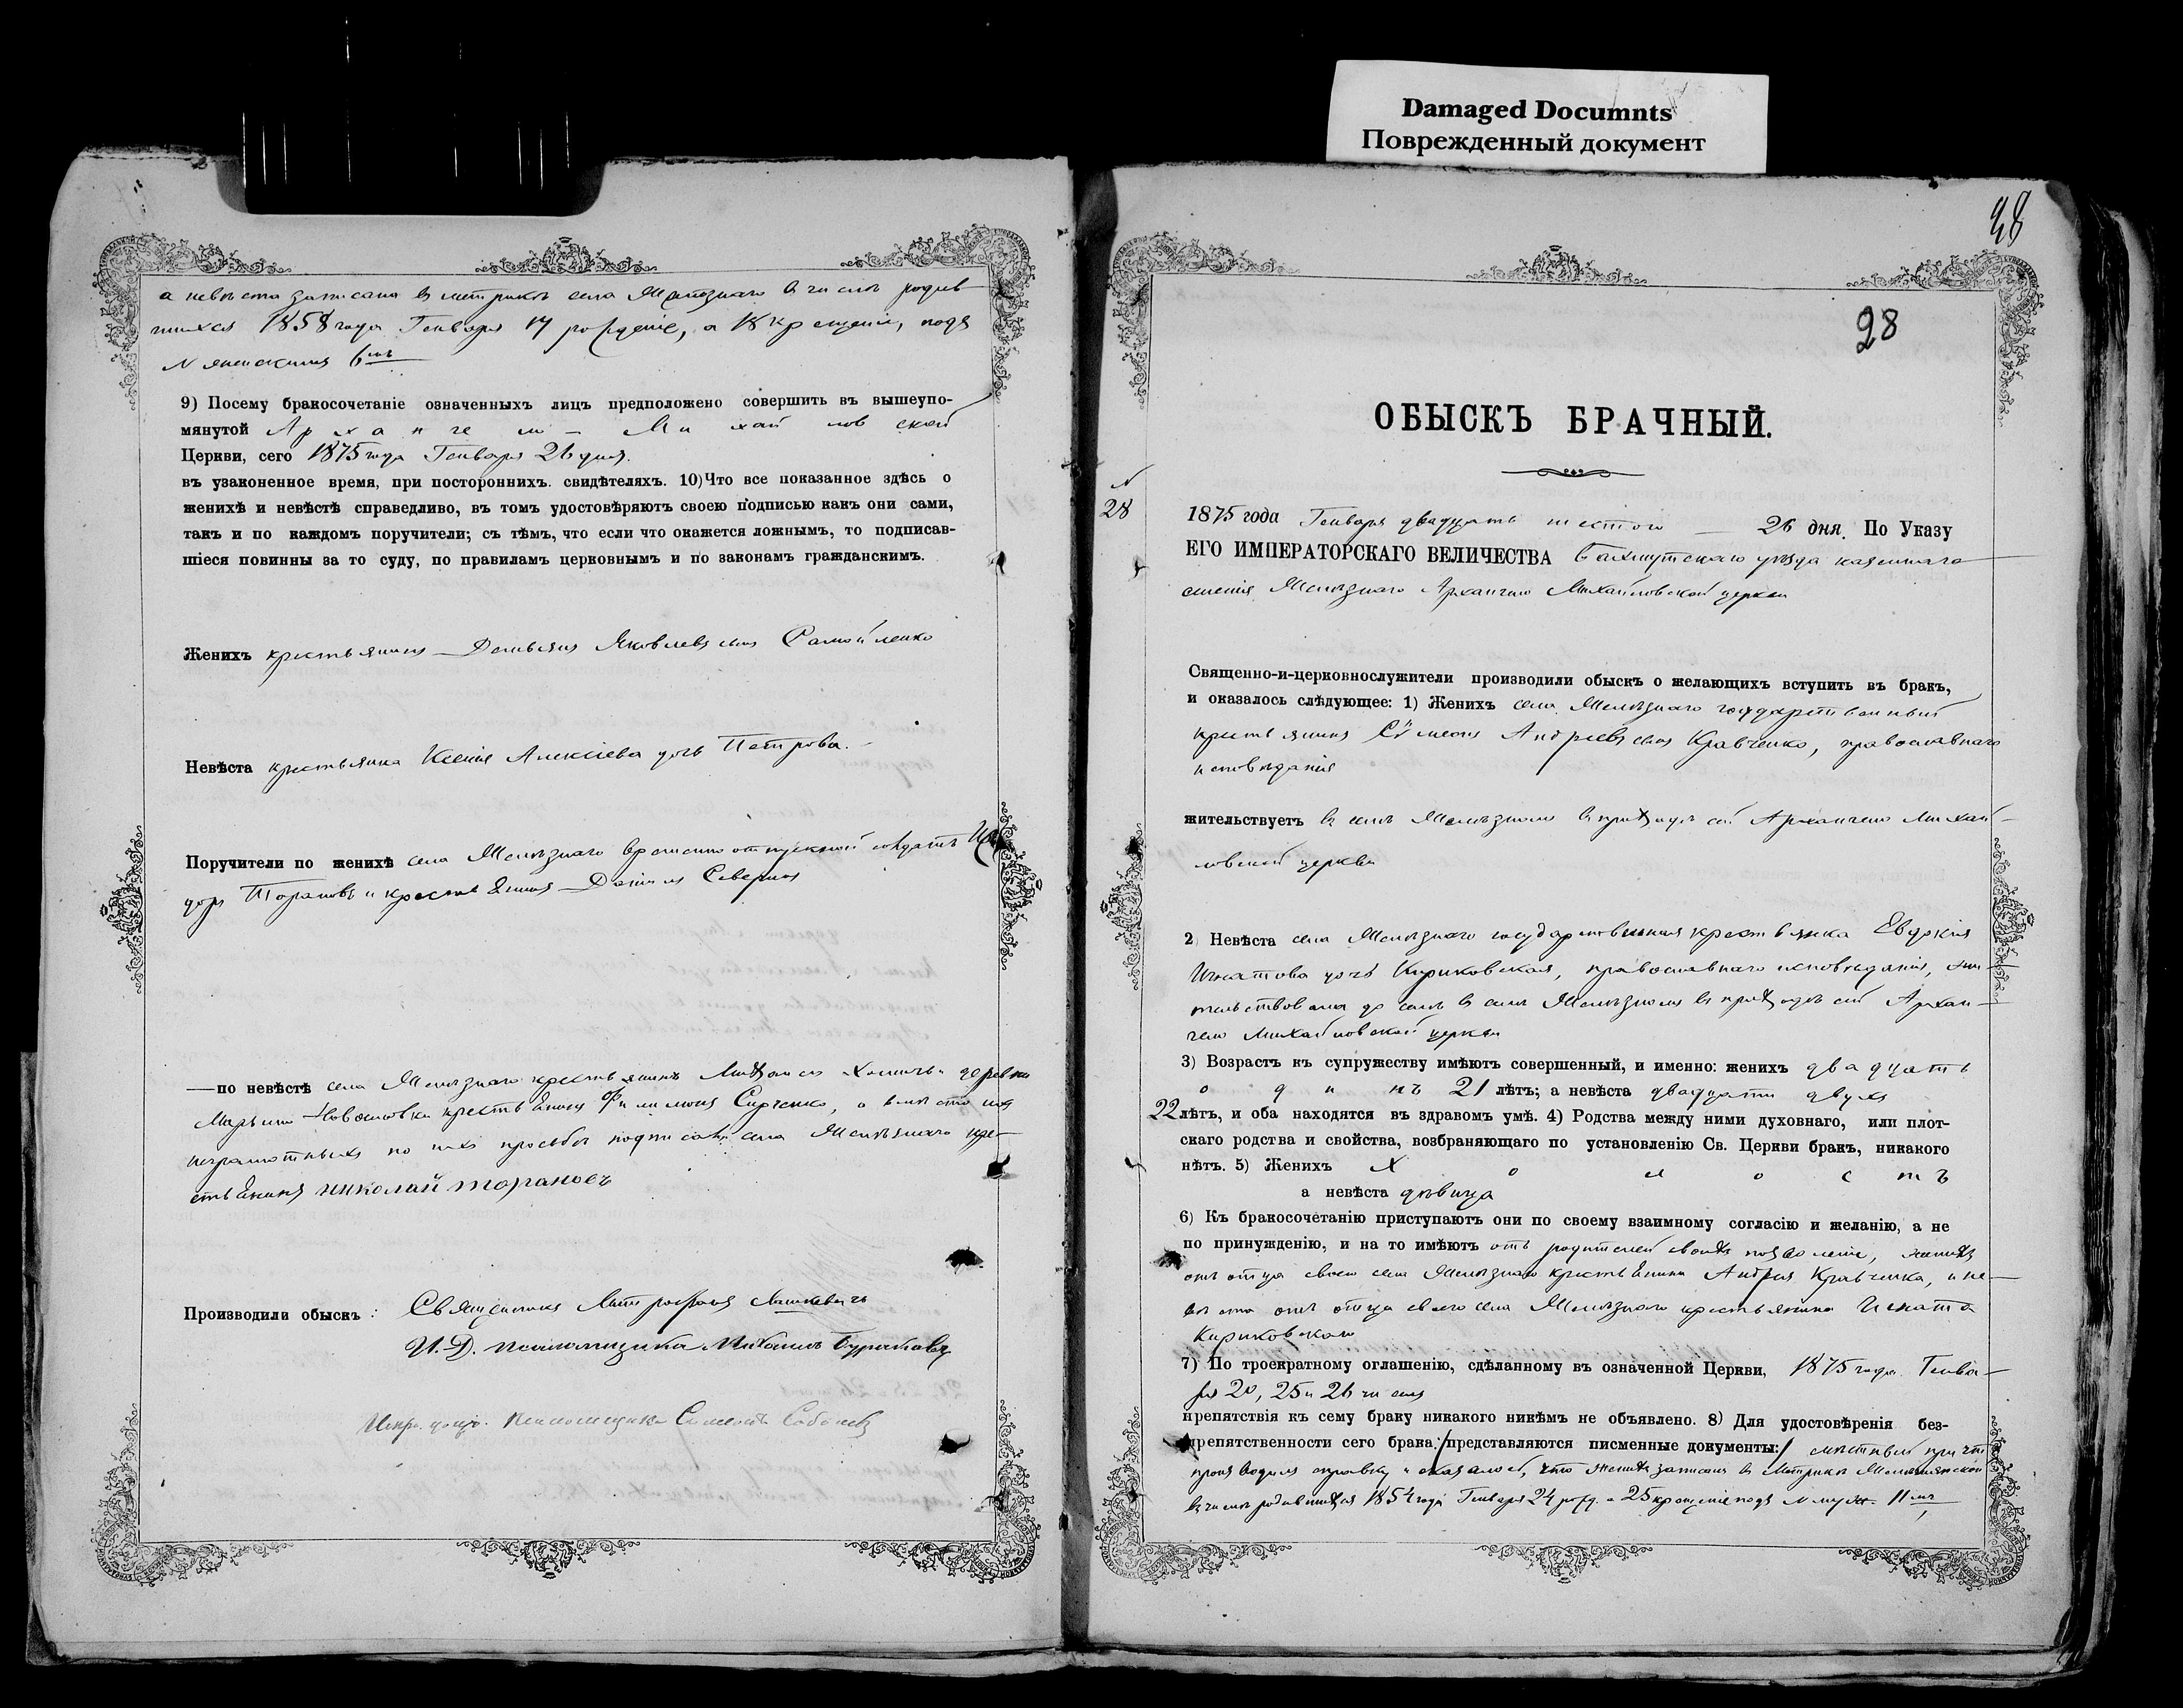 Damaged Documnts
Поврежденный документ
а невѣста записана въ метрикѣ села Желѣзнаго въ числѣ родив
шихся 1858 года Генваря 17 рожденіе, а 18 крещеніе, подъ
N женскимъ 6мъ
9) Посему бракосочетаніе означенныхъ лицъ предположено совершить въ вышеупо-
мянутой Архангело-Михайловской
Церкви, сего 1875 года Генваря 26 дня.
въ узаконенное время, при постороннихъ. свидѣтеляхъ. 10) Что все показанное здѣсь о
женихѣ и невѣстѣ справедливо, въ томъ удостовѣряютъ своею подписью какъ они сами,
такъ и по каждомъ поручители; съ тѣмъ, что если что окажется ложнымъ, то подписав-
шіеся повинны за то суду, по правиламъ церковнымъ и по законамъ гражданскимъ.
Женихъ крестьянинъ Демьянъ Яковлевъ сынъ Самойленко
Невѣста крестьянка Ксенія Алексіева дочь Петрова.
Поручители по женихѣ села Желѣзнаго временно отпускной солдатъ
доръ Торановъ и крестьянинъ Даніилъ Северинъ
—по невѣстѣ села Желѣзнаго крестьянинъ деревни
крестьянинъ Филимонъ Сирченко, а вмѣсто ихъ
неграмотныхъ по ихъ просьбѣ подписалъ села Желѣзнаго кре-
стьянинъ Николай Торановъ
Производили обыскъ: Священникъ Митрофанъ
И. Д. псаломщика Михаилъ
псаломщика Симеонъ Соболевъ
28
28
ОБЫСКЪ БРАЧНЫЙ.
N
28
1875 года Генваря двадцать шестого — 26 дня. По Указу
ЕГО ИМПЕРАТОРСКАГО ВЕЛИЧЕСТВА Бахмутскаго уѣзда казеннаго
селенія Желѣзнаго Архангело Михайловской церкви
Священно-и-церковнослужители производили обыскъ о желающихъ вступить въ бракъ,
и оказалось слѣдующее: 1) Женихъ села Желѣзнаго государственный
крестьянинъ Сѵмеонъ Андреевъ сынъ Кравченко, православнаго
исповѣданія
жительствуетъ въ селѣ Желѣзномъ въ приходѣ сей Архангело Михай-
ловской церкви
2) Невѣста села Желѣзнаго государственная крестьянка Евдокія
Игнатова дочь Кириковская, православнаго исповѣданія, жи-
тельствовала до селѣ въ селѣ Желѣзномъ въ приходѣ сей Архан-
гело Михайловской церкви
3) Возрастъ къ супружеству имѣютъ совершенный, и именно: женихъ двадцать
одинъ 21 лѣтъ; а невѣста двадцати двухъ
22 лѣтъ, и оба находятся въ здравомъ умѣ. 4) Родства между ними духовнаго, или плот-
скаго родства и свойства, возбраняющаго по установленію Св. Церкви бракъ, никакого
нѣтъ. 5) Женихъ Холостъ
а невѣста дѣвица
6) Къ бракосочетанію приступаютъ они по своему взаимному согласію и желанію, а не
по принужденію, и на то имѣютъ отъ родителей своихъ позволеніе, женихъ
отъ отца своего села Желѣзнаго крестьянина Андрея Кравченка, и не-
вѣста отъ отца своего села Желѣзнаго крестьянина Игната
Кириковскаго
7) По троекратному оглашенію, сдѣланному въ означенной Церкви, 1875 года Генва-
ря 20, 25 и 26 чиселъ
препятствія къ сему браку никакого никѣмъ не объявлено. 8) Для удостовѣренія без-
препятственности сего брака: представляются писменные документы: мѣстный причтъ
производилъ справку и оказалось, что женихъ записанъ въ метрикѣ Желѣзнянской
въ числѣ родившихся 1854 года Генваря 24 рожд. а 25 крещеніе подъ N муж. 11мъ,